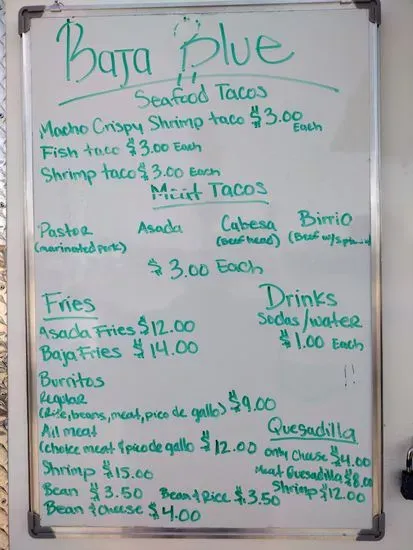 Baja Blue
Seafood Tacos
Macho Crispy Shrimp taco $3.00 Each
Fish taco $3.00 Each
Shrimp taco $3.00 Each
Meat Tacos
Pastor Asada Cabesa Birrio
(marinated pork) (Beef head) (Beef w/
$3.00 Each
Fries
Asada Fries $12.00
Baja Fries $14.00
Drinks
Sodas/water
$1.00 Each
!!
Burritos
Regular
(Rice, beans, meat, pico de gallo) $9.00
All meat
(choice meat & pico de gallo $12.00
Shrimp $15.00
Bean $3.50 Bean & Rice $3.50
Bean & Cheese $4.00
Quesadilla
only Cheese $4.00
Meat Quesadilla $8.00
Shrimp $12.00